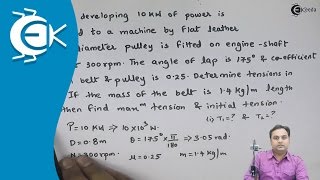 developing 10 KW of power is
d to a machine by flat leather
diameter pulley is fitted on engine-shaft
300 rpm. The angle of lap is 175° & co-efficient
belt & pulley is 0.25. Determine tensions in
If the mass of the belt is 1.4 kg/m length
then find maxm tension & initial tension.
(i) T₁ = ? & T₂ = ?
P = 10 KW ⇒ 10×10³ W.
D = 0.8m θ = 175° × π/180 ⇒ 3.05 rad.
N = 300 rpm. μ = 0.25 m = 1.4 kg/m